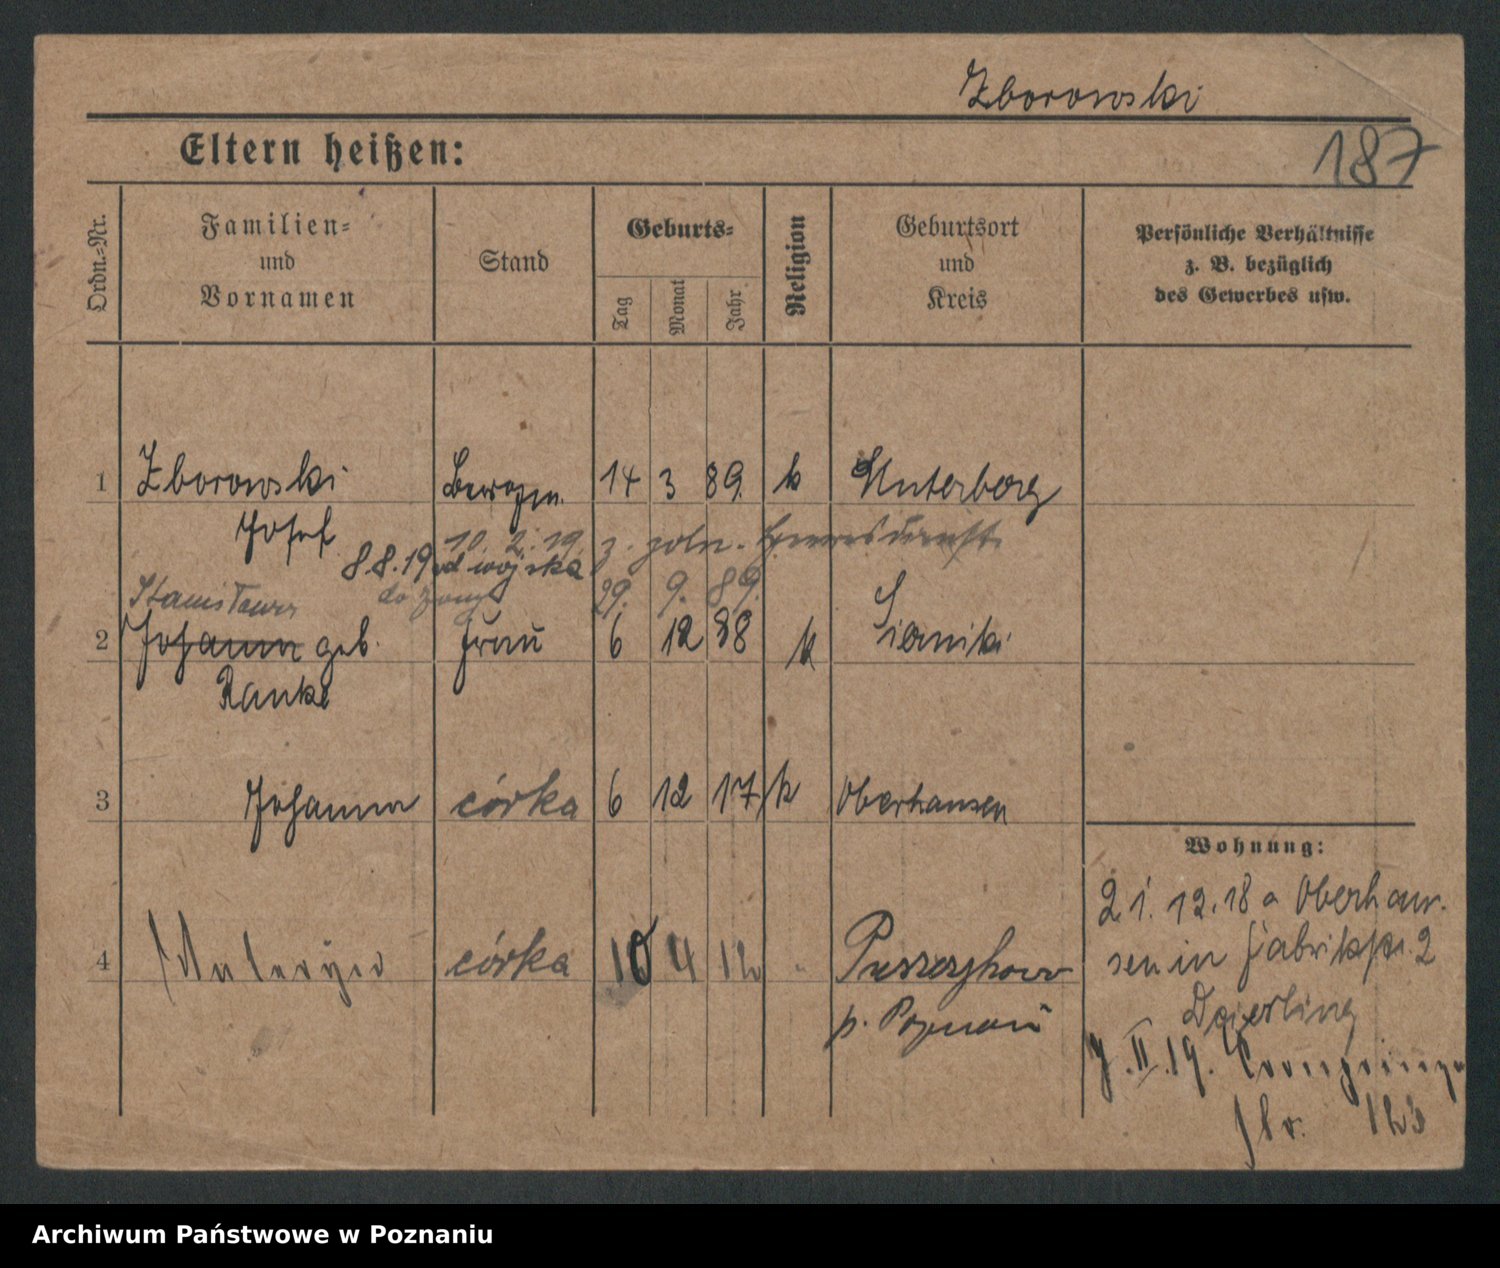 Zborowski
187
Eltern heißen:
Ordn.-Nr.
Familien-
und
Vornamen
Stand
Geburts-
Tag
Monat
Jahr
Religion
Geburtsort
und
Kreis
Persönliche Verhältnisse
z. B. bezüglich
des Gewerbes usw.
1 Zborowski 14 3 89. k Unterberg
Josef 10. 2. 19. z. poln. Heeresdienst
8.8.19 od wojska
do żony
Stanisława 29. 9. 89.
2 Johanna geb. Frau 6 12 88 k Sierniki
Ranke
3 Johanna córka 6 12 17 k Oberhausen
Wohnung:
21. 12. 18 a Oberhau-
4 córka 10 4 Puszczykowo
sen in Fabrikstr. 2
p. Poznań
II. 19.